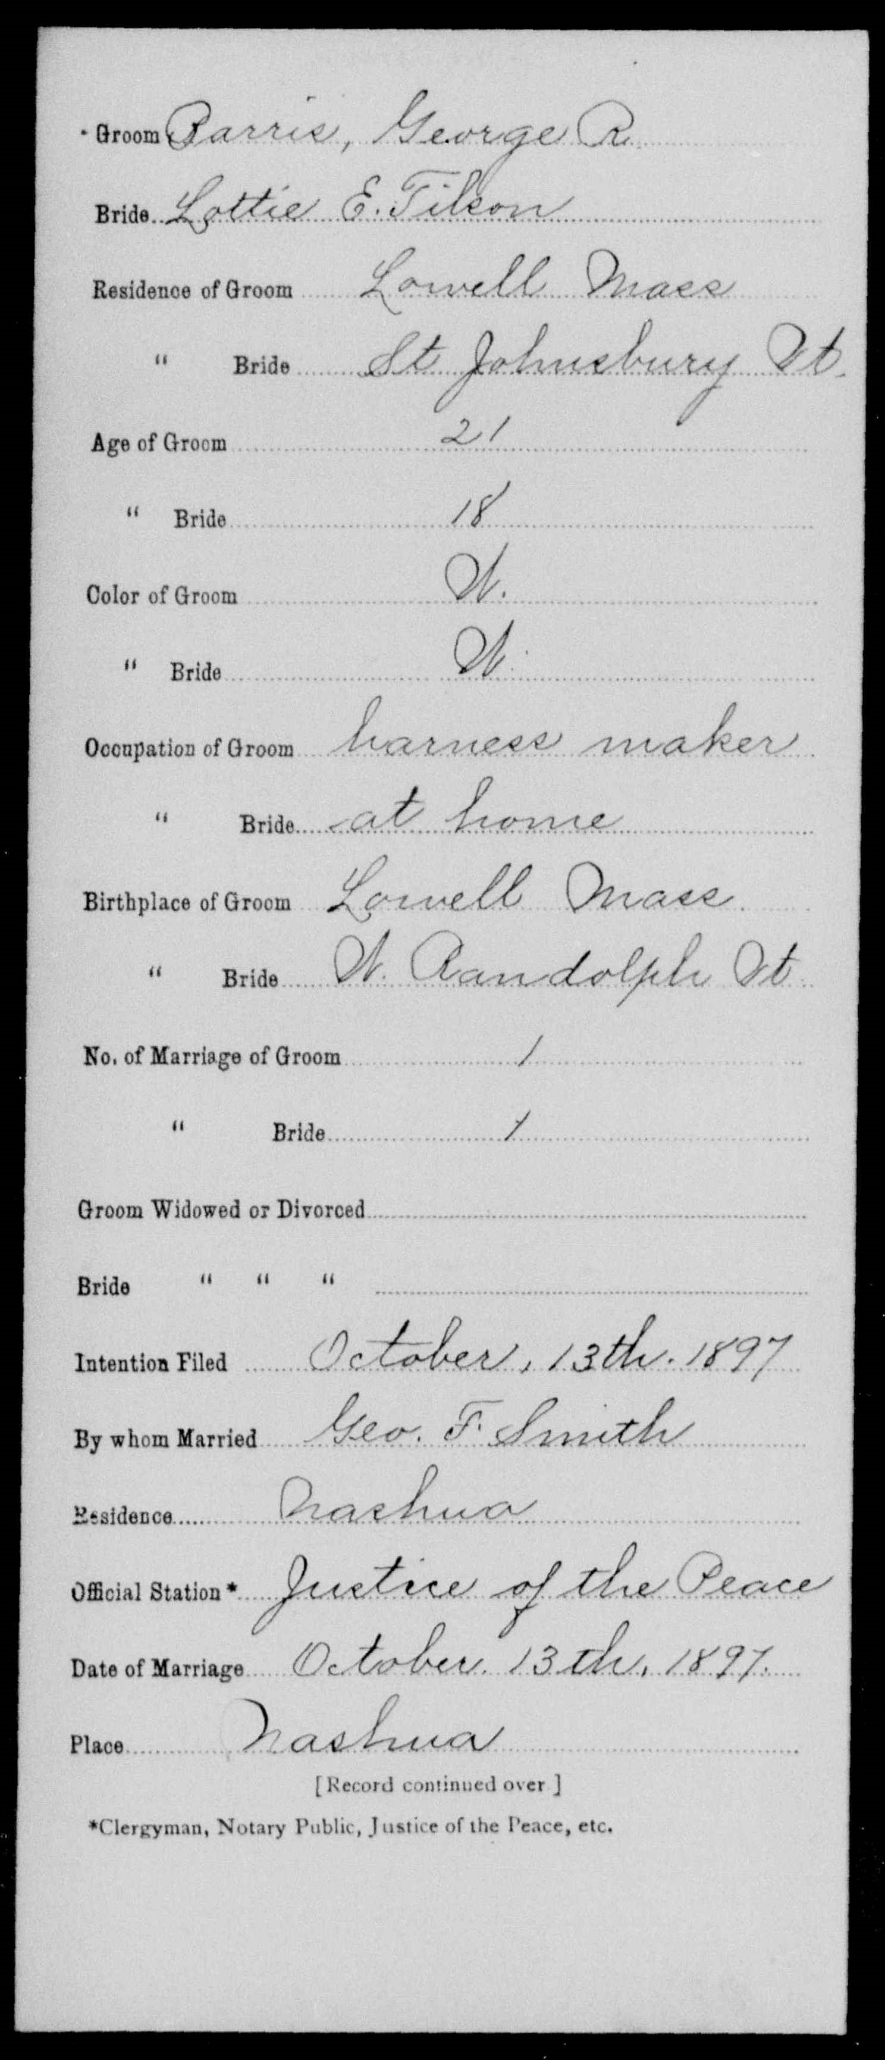 Groom Parris, George R.
Bride Lottie E. Tilson
Residence of Groom Lowell Mass
" Bride St Johnsbury Vt.
Age of Groom 21
" Bride 18
Color of Groom W.
" Bride W.
Occupation of Groom harness maker
" Bride at home
Birthplace of Groom Lowell Mass.
" Bride W. Randolph Vt.
No. of Marriage of Groom 1
" Bride 1
Groom Widowed or Divorced
Bride " " "
Intention Filed October, 13th. 1897
By whom Married Geo. F. Smith
Residence Nashua
Official Station* Justice of the Peace
Date of Marriage October. 13th, 1897.
Place Nashua
[Record continued over]
*Clergyman, Notary Public, Justice of the Peace, etc.